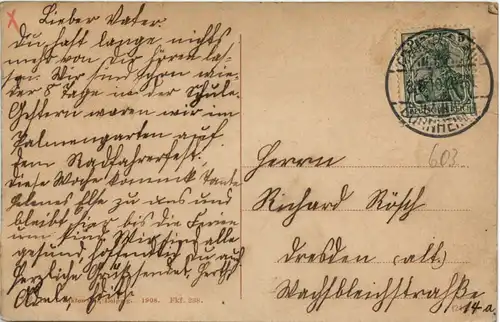 Lieber Vater.
Du hast lange nichts
mehr von dir hören las-
sen. Wir sind schon wie-
der 8 Tage in der Schule.
Gestern waren wir im
Palmengarten auf
dem Radfahrerfest.
Diese Woche kommt Tante
Else zu uns und
bleibt hier bis die Ferien
um sind. Wir sind alle
gesund, hoffentlich Du auch
herzliche Grüße sendet,
Edith.
1908. Ekf. 299.
603
Herrn
Richard Rösch
Dresden (alt)
Wachsbleichstraße
14 a